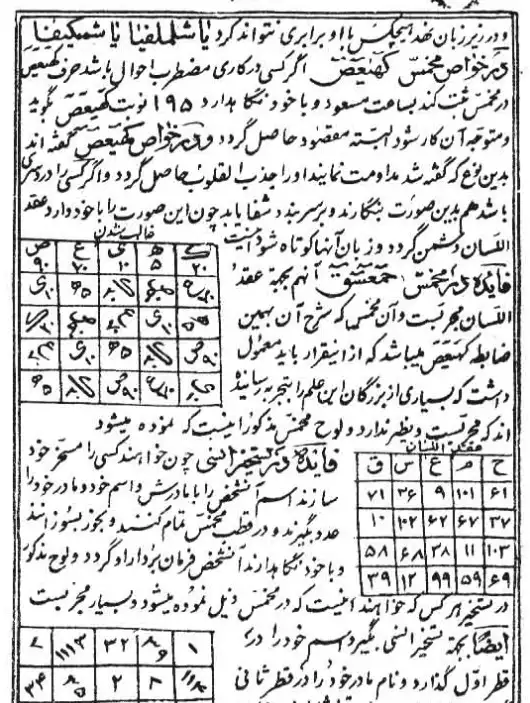 و در زیر زبان نهد هیچکس با او برابری نتواند کرد یا شلملفیا یا شمیکیفیا
در خواص مخمس کهیعص اگر کسی در کاری مضطرب احوال باشد حرف کهیعص
در مخمس ثبت کند بساعت مسعود و با خود نگاهدارد ۱۹۵ نوبت کهیعص گوید
و متوجه آن کار شود البته مقصود حاصل گردد و در خواص کهیعص گفته اند
بدین نوع که گفته شد مداومت نمایند او را جذب القلوب حاصل گردد و اگر کسی را درد سری
باشد هم بدین صورت بنگارند و بر سر بندد شفا یابد چون این صورت را با خود دارد عقد
اللسان دشمن گردد و زبان آنها کوتاه شود اینست
غالب شدن
ک ه ی ع ص
۲۰ ۵ ۱۰ ۷۰ ۹۰
فایده در مخمس حمعسق آنهم بجهة عقد
اللسان مجربست و آن مخمس که شرح آن بهمین
ضابطه کهیعص میباشد که از اینقرار باید معمول
داشت که بسیاری از بزرگان این علم را بتجربه رسانیده
اند که مجربست و نظیر ندارد و لوح مخمس مذکور اینست که نموده میشود
فایده در تسخیر انسی چون خواهند کسی را مسخر خود
سازند اسم آنشخص را با مادرش و اسم خود و مادر خود را
عدد بگیرند و در قطب مخمس تمام کنند و بخور بسوزانند
و با خود نگاهدارند آنشخص فرمان بردار او گردد و لوح مذکور
ح م ع س ق
۶۱ ۱۰۱ ۹ ۳۶ ۷۱
۳۷ ۶۷ ۶۲ ۱۰۲ ۱۰
۱۰۳ ۱۱ ۳۸ ۶۸ ۵۸
۶۹ ۵۹ ۹۹ ۱۲ ۳۹
در تسخیر هر کس که خواهند اینست که در مخمس ذیل نموده میشود و بسیار مجربست
ایضا بجهة تسخیر انسی بگیر و اسم خود را در
قطر اول گذارد و نام مادر خود را در قطر ثانی